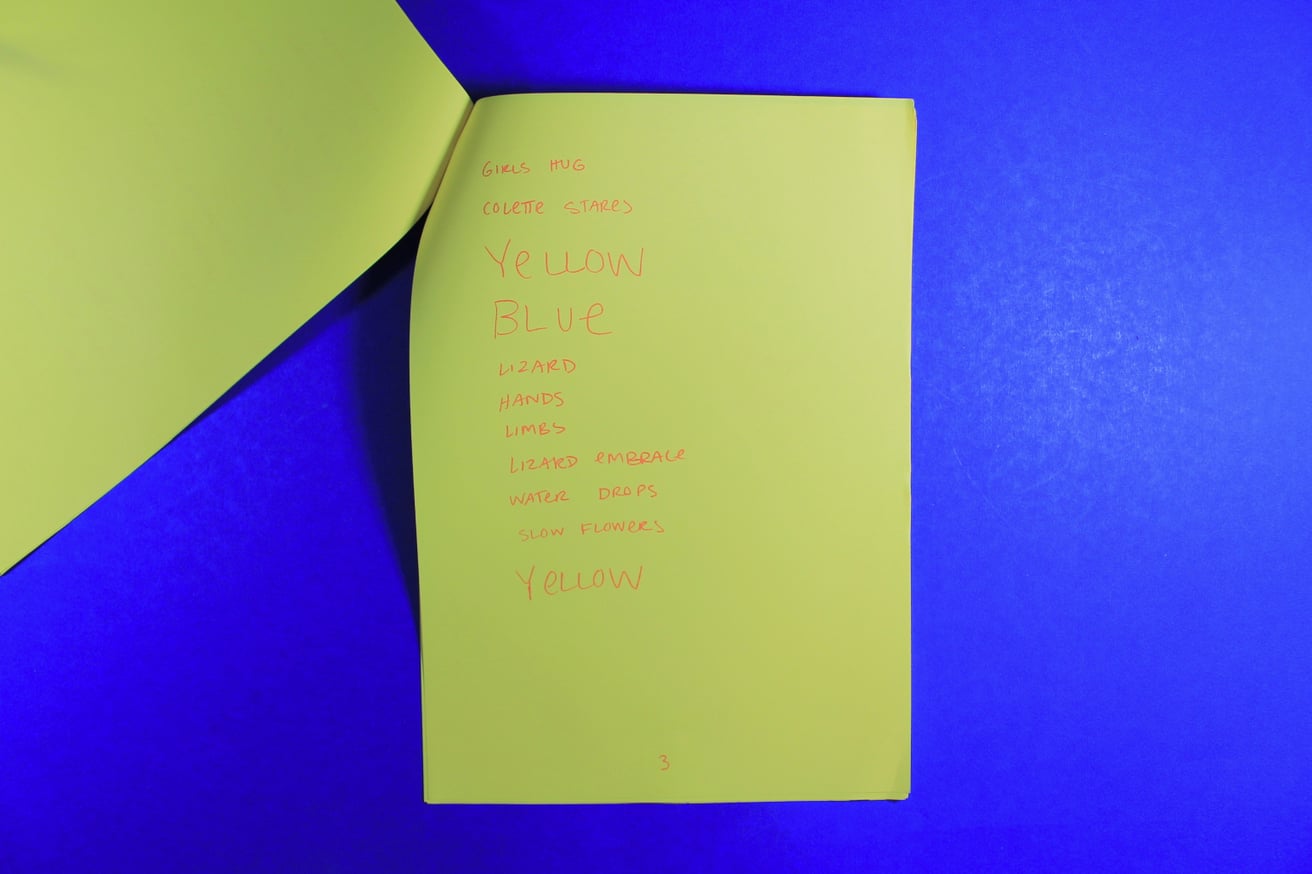 GIRLS HUG
COLETTE STARES
YeLLOW
BLUe
LIZARD
HANDS
LIMBS
LIZARD eMBRACe
WATeR DROPS
SLOW FLOWeRS
YeLLOW
3